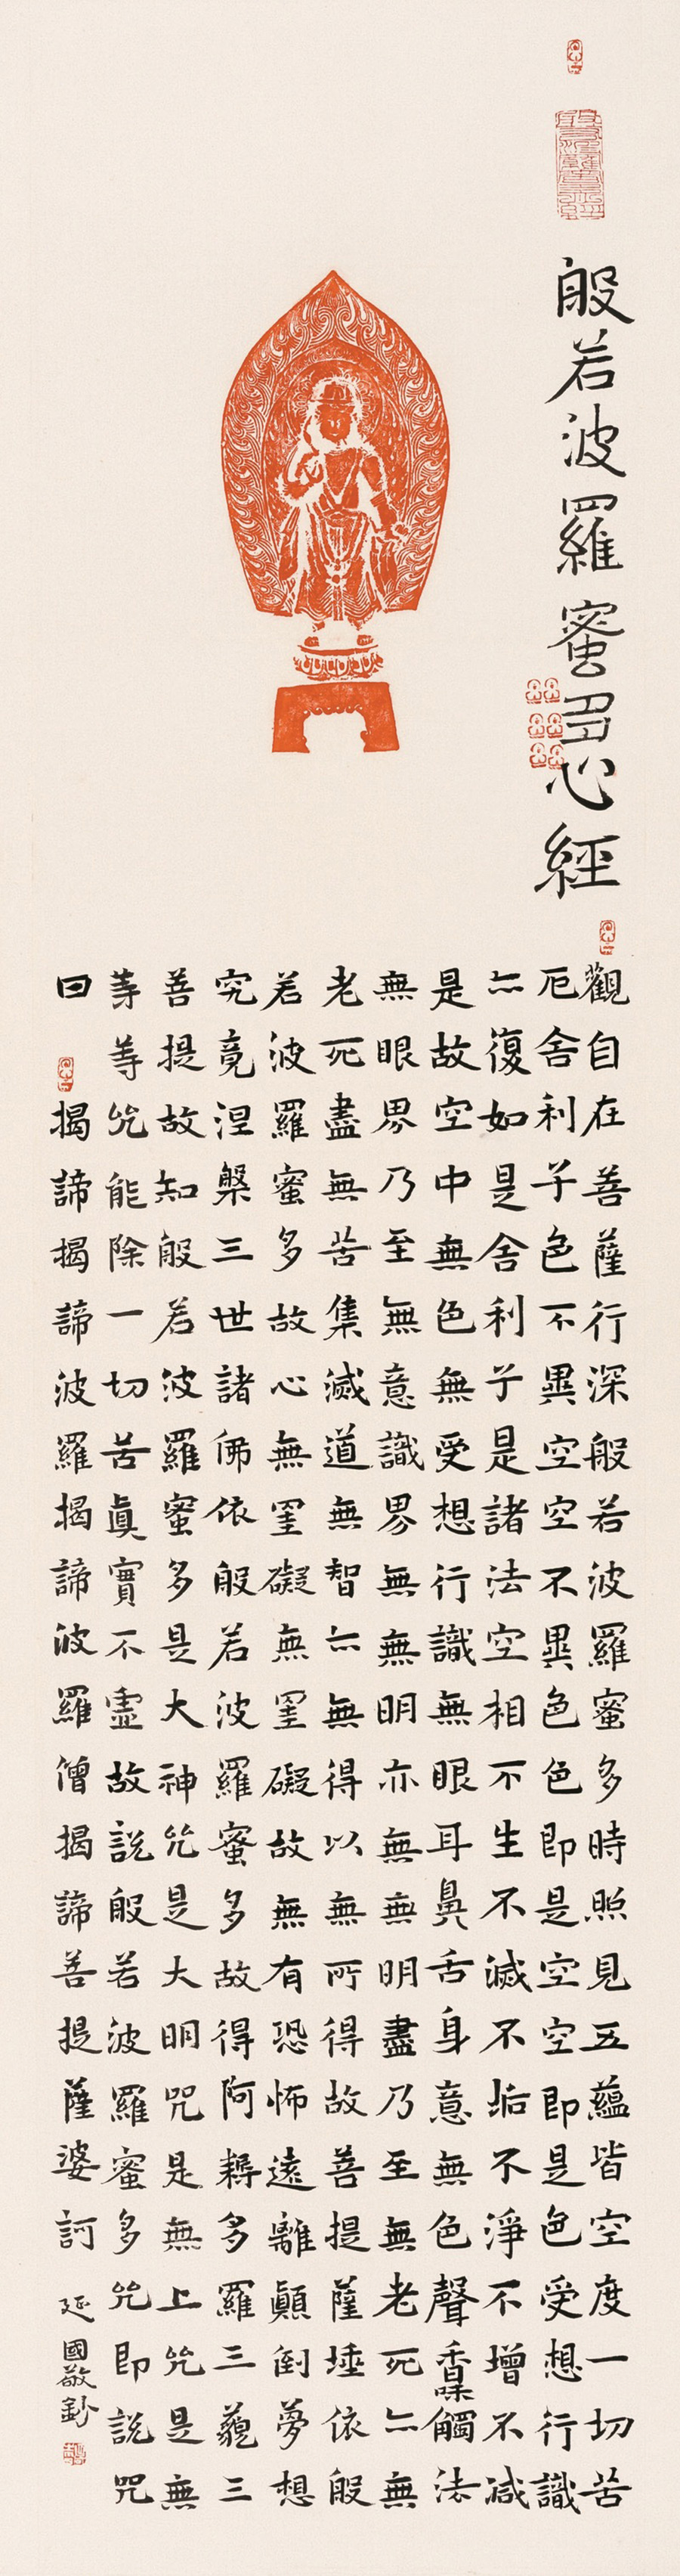 般若波羅蜜多心經
觀自在菩薩行深般若波羅蜜多時照見五蘊皆空度一切苦
厄舍利子色不異空空不異色色即是空空即是色受想行識
亦復如是舍利子是諸法空相不生不滅不垢不淨不增不減
是故空中無色無受想行識無眼耳鼻舌身意無色聲香味觸法
無眼界乃至無意識界無無明亦無無明盡乃至無老死亦無
老死盡無苦集滅道無智亦無得以無所得故菩提薩埵依般
若波羅蜜多故心無罣礙無罣礙故無有恐怖遠離顛倒夢想
究竟涅槃三世諸佛依般若波羅蜜多故得阿耨多羅三藐三
菩提故知般若波羅蜜多是大神咒是大明咒是無上咒是無
等等咒能除一切苦真實不虛故說般若波羅蜜多咒即說咒
曰 揭諦揭諦波羅揭諦波羅僧揭諦菩提薩婆訶 延國敬鈔